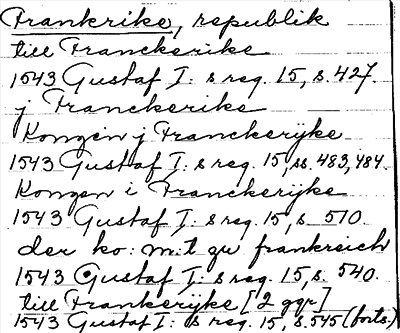 Frankrike, republik
till Franckerike
1543 Gustaf I:s reg. 15, s. 427.
j Franckerike
Kongen j Franckerijke
1543 Gustaf I:s reg. 15, ss. 483, 484.
Kongen i Franckerijke
1543 Gustaf I:s reg. 15, s. 510.
der ko: m:t zu frankreich
1543 Gustaf I:s reg. 15, s. 540.
till Frankerijke [2 ggr]
1543 Gustaf I:s reg. 15, s. 545 (forts.)